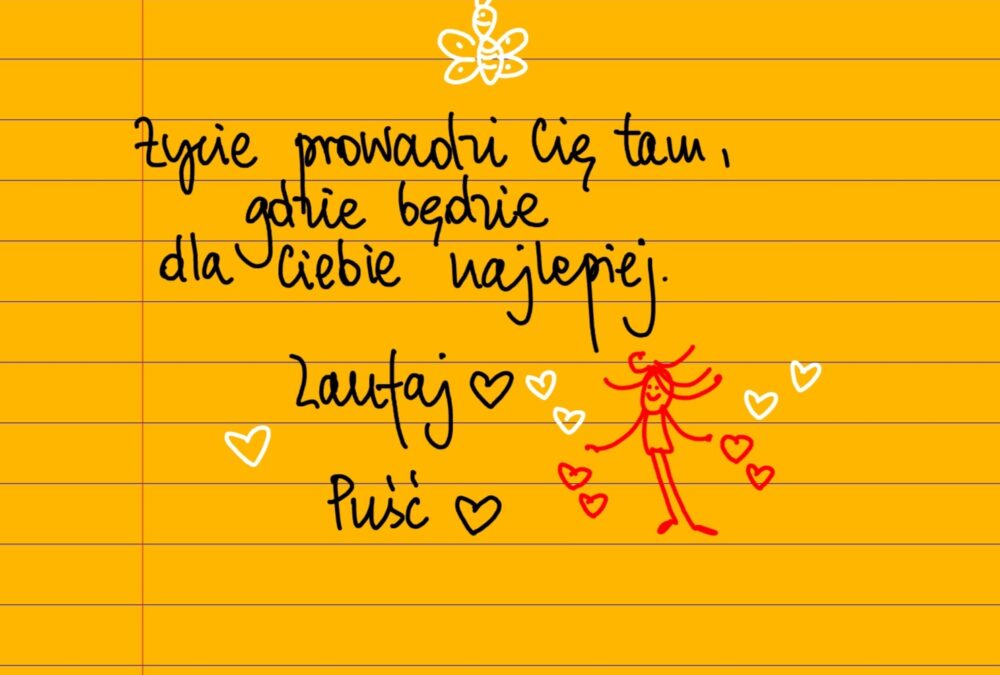 Życie prowadzi Cię tam,
gdzie będzie
dla Ciebie najlepiej.
Zaufaj ♡
Puść ♡